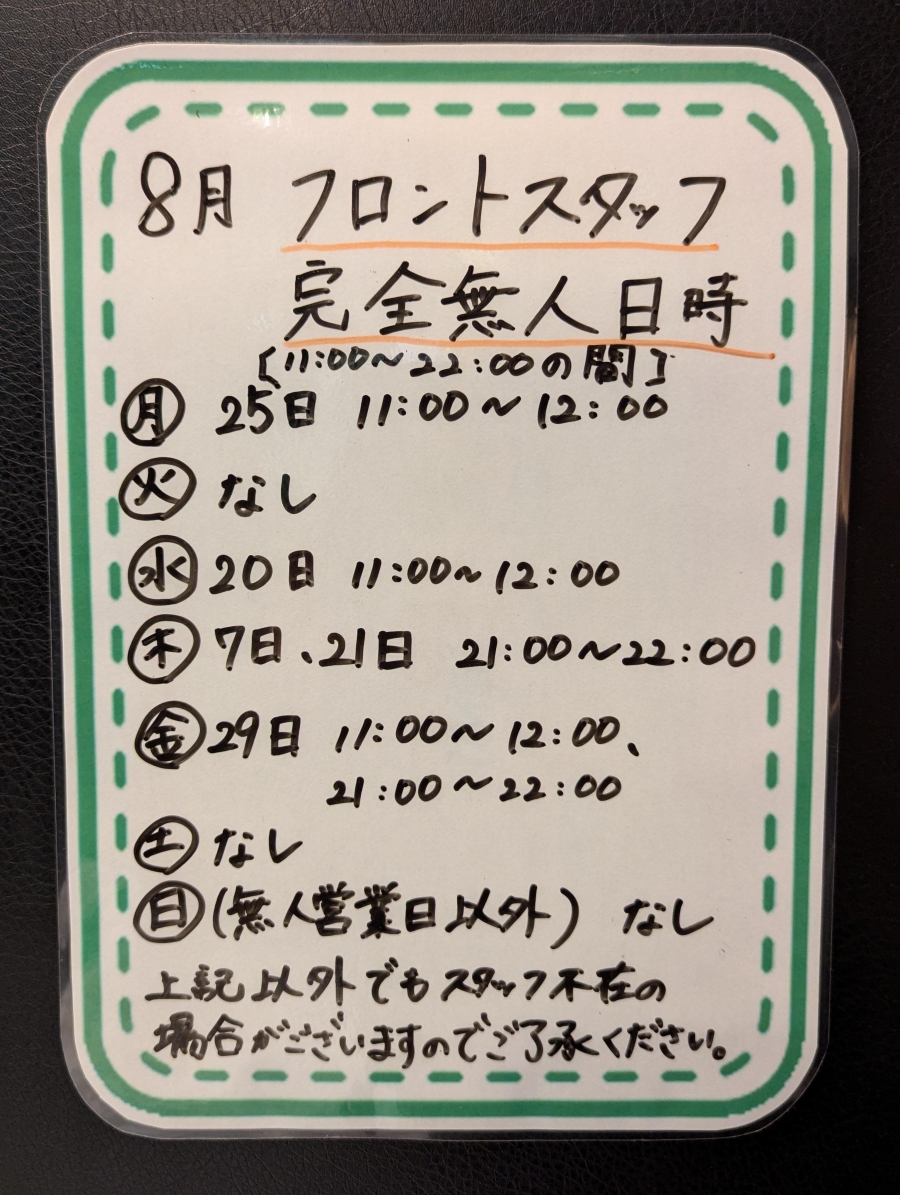 8月 フロントスタッフ
完全無人日時
[11:00～22:00の間]
月 25日 11:00～12:00
火 なし
水 20日 11:00～12:00
木 7日、21日 21:00～22:00
金 29日 11:00～12:00、
21:00～22:00
土 なし
日 (無人営業日以外) なし
上記以外でもスタッフ不在の
場合がございますのでご了承ください。